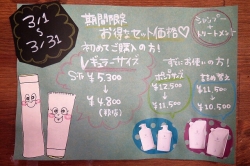 3/1
~
3/31
期間限定
お得なセット価格♡
シャンプー
+
トリートメント
初めてご購入の方!
レギュラーサイズ
Set ¥5,300
↓
¥4,800
(税抜)
すでにお使いの方!
¥12,500
↓
¥11,500
詰め替え
¥11,500
↓
¥10,500